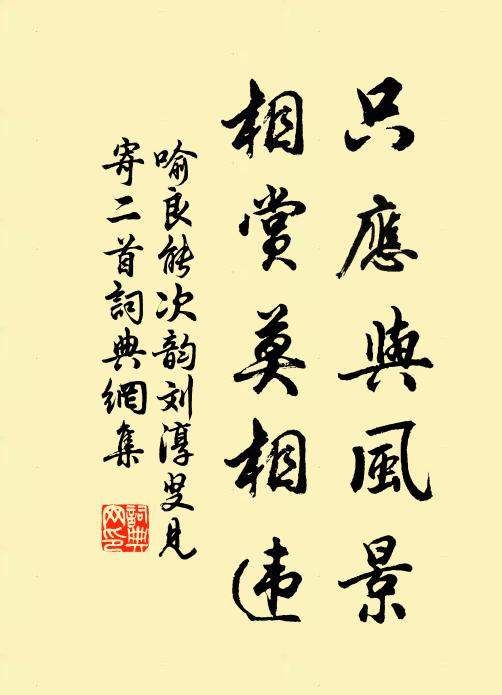 只應與風景
相賞莫相违
喻良能次韵刘淳叟見
寄二首詞典網集
詞典
网印